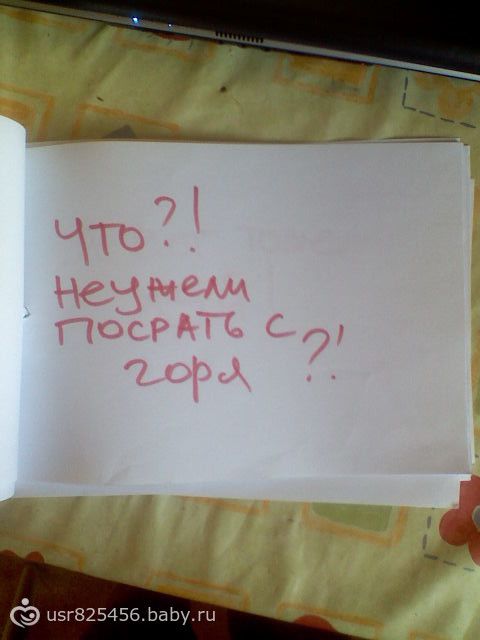 что?!
неужели
посрать с
горя ?!
usr825456.baby.ru